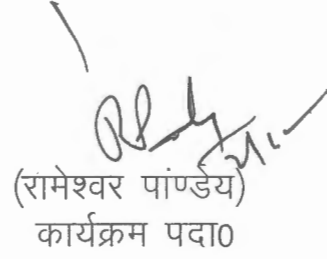 (रामेश्वर पांर्ण्डेय)
कार्यक्रम पदा0